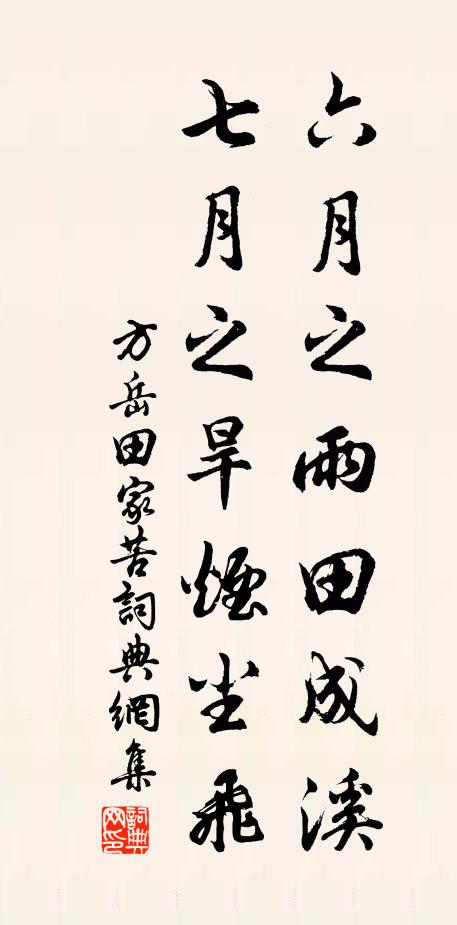 六月之雨田成溪
七月之旱煙尘飛
方岳田家苦詞典網集
詞典网印